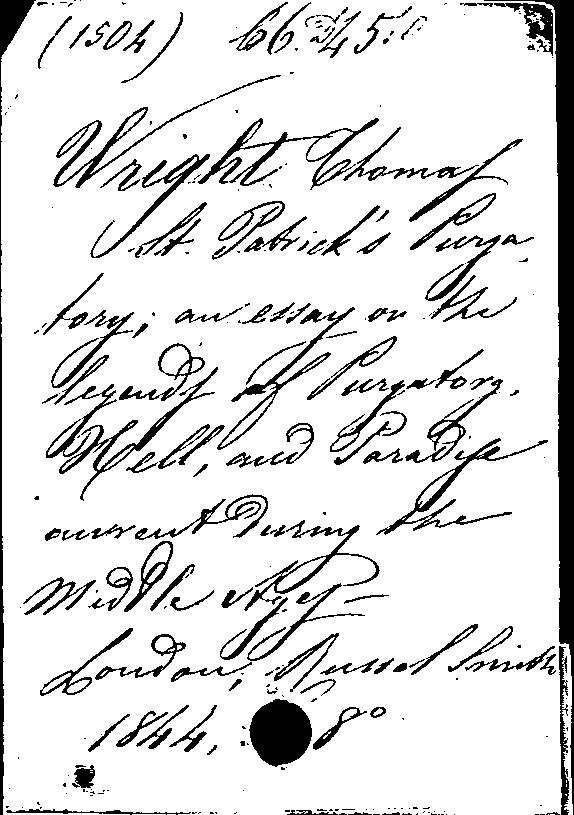 (1504) 66.
Wright Thomas
St. Patrick's Purga-
tory; an essay on the
legends of Purgatory,
Hell, and Paradise
current during the
Middle Ages—
London, Russel Smith
1844, 8°